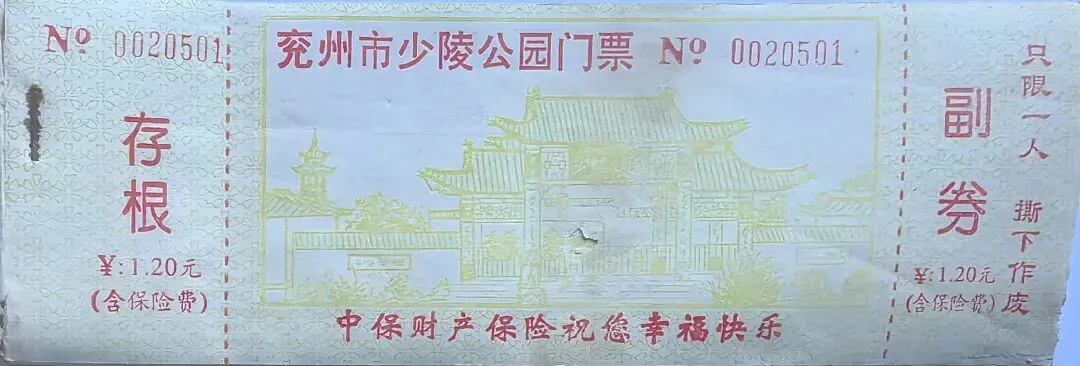 Nº 0020501
存根
¥:1.20元
(含保险费)
兖州市少陵公园门票 Nº 0020501
中保财产保险祝您幸福快乐
副券
¥:1.20元
(含保险费)
只限一人 撕下作废